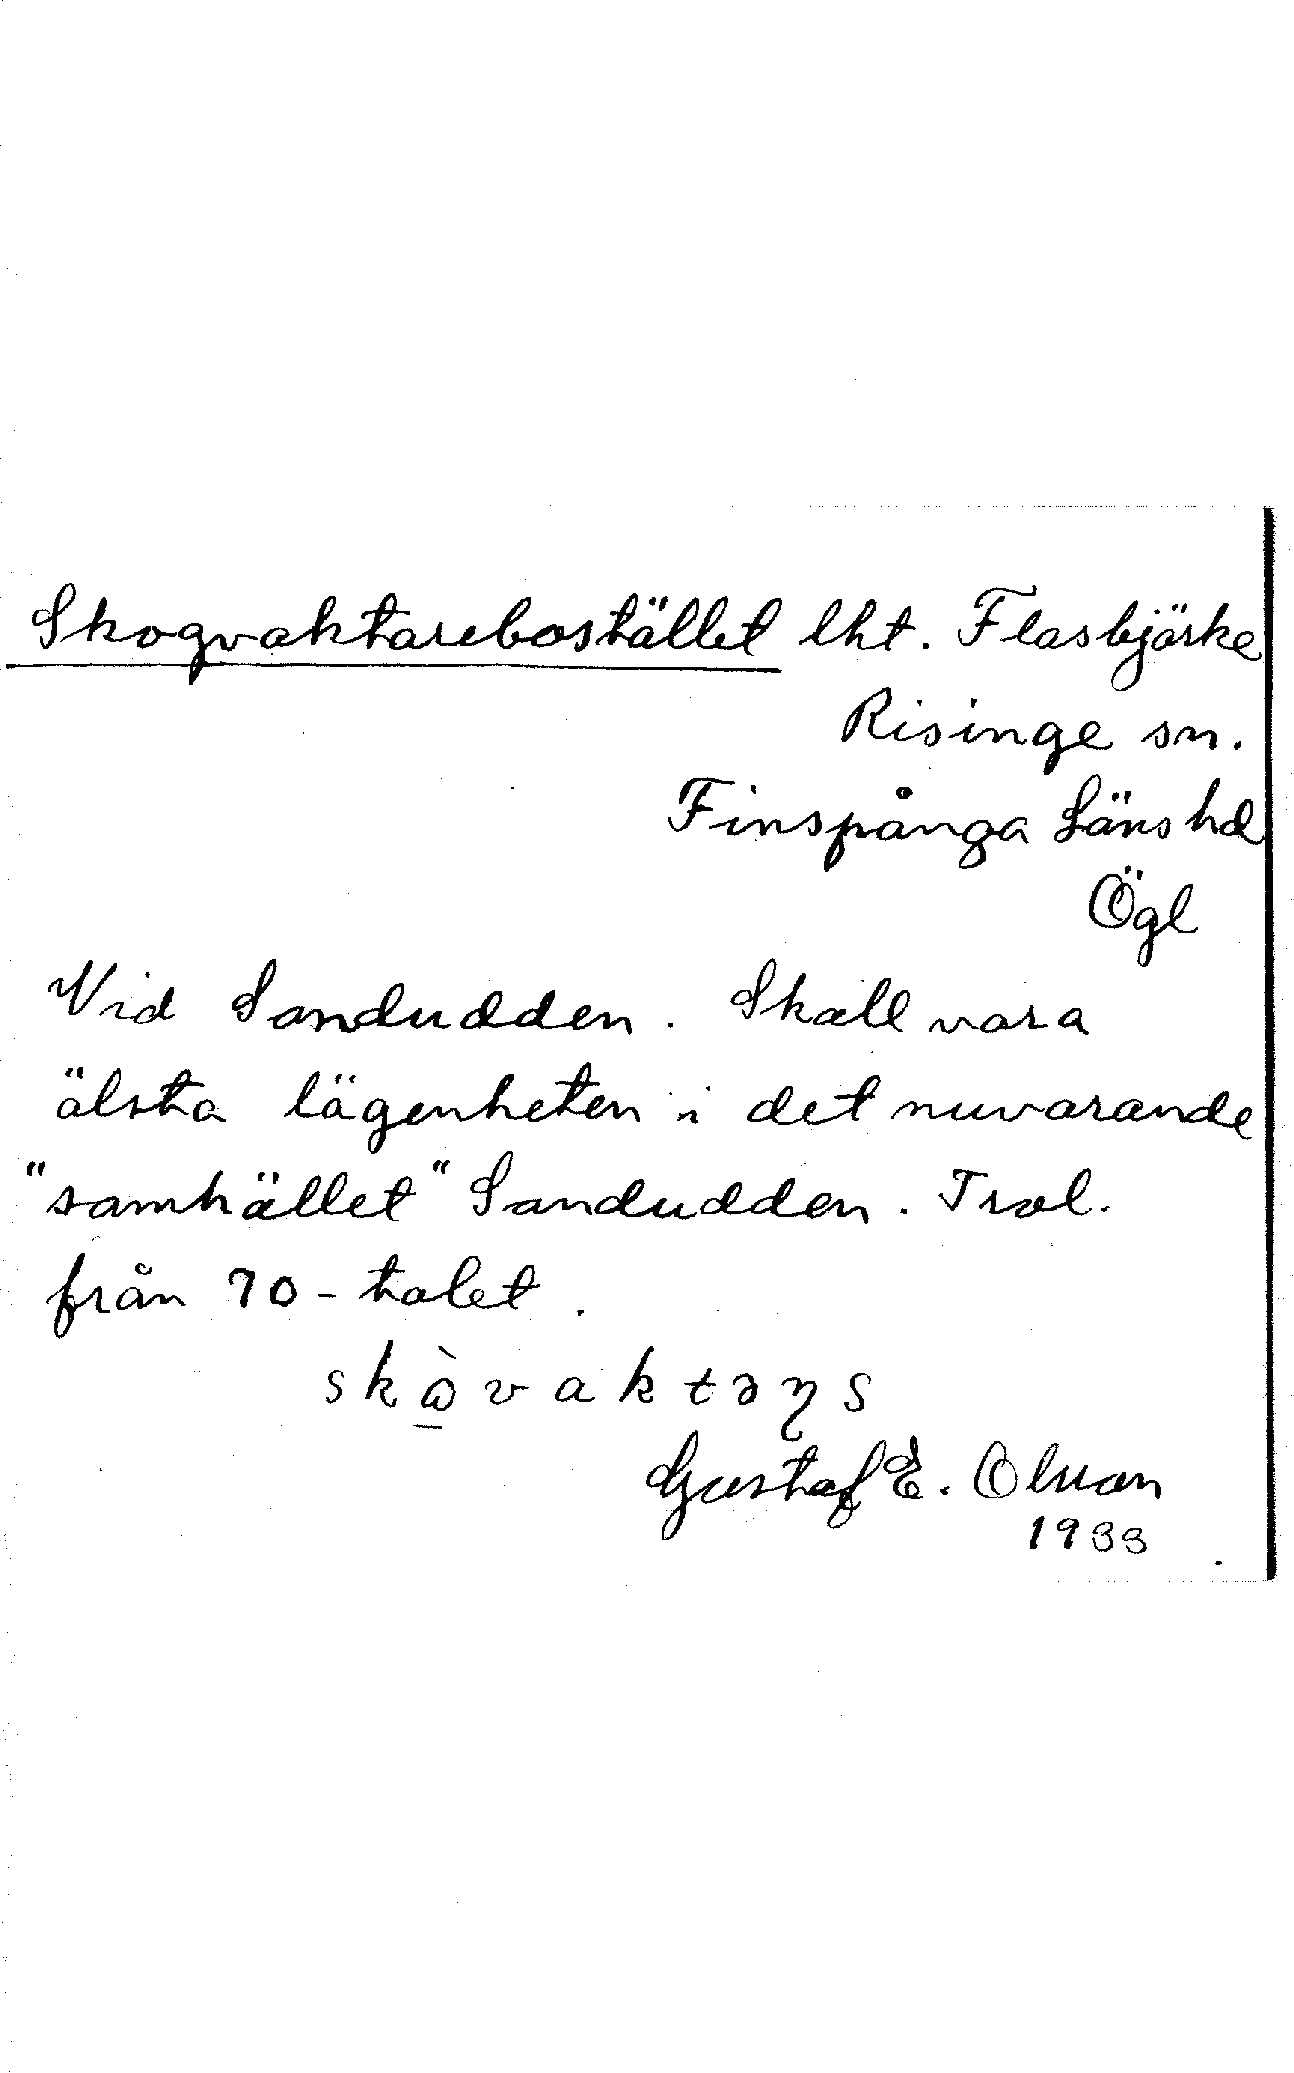 Skogvaktarebostället lht. Flasbjörke
Risinge sn.
Finspånga Läns hd
Ögl
Vid Sandudden. Skall vara
älsta lägenheten i det nuvarande
"samhället" Sandudden. Trol.
från 70-talet.
skὼvaktaɳs
Gustaf E. Olsson
1933